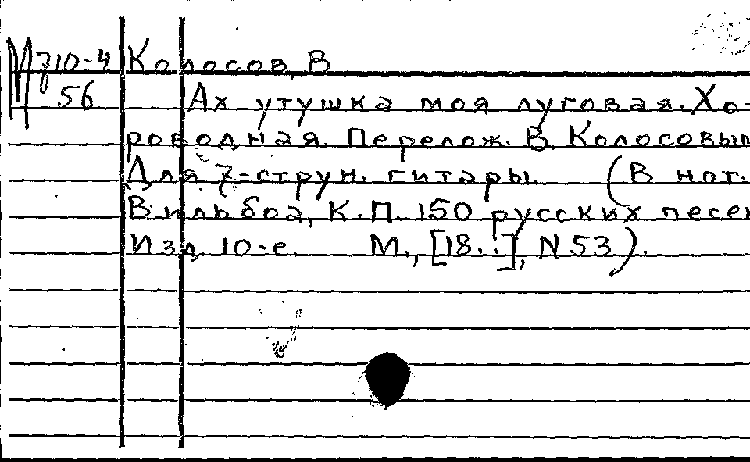 М 310-4 Колосов, В
56 Ах утушка моя луговая. Хо-
роводная. Перелож. В. Колосовым
Для 7-струн. гитары. (В нот.
Вильбоа, К.П. 150 русских песен
Изд. 10-е. М., [18..], N 53).